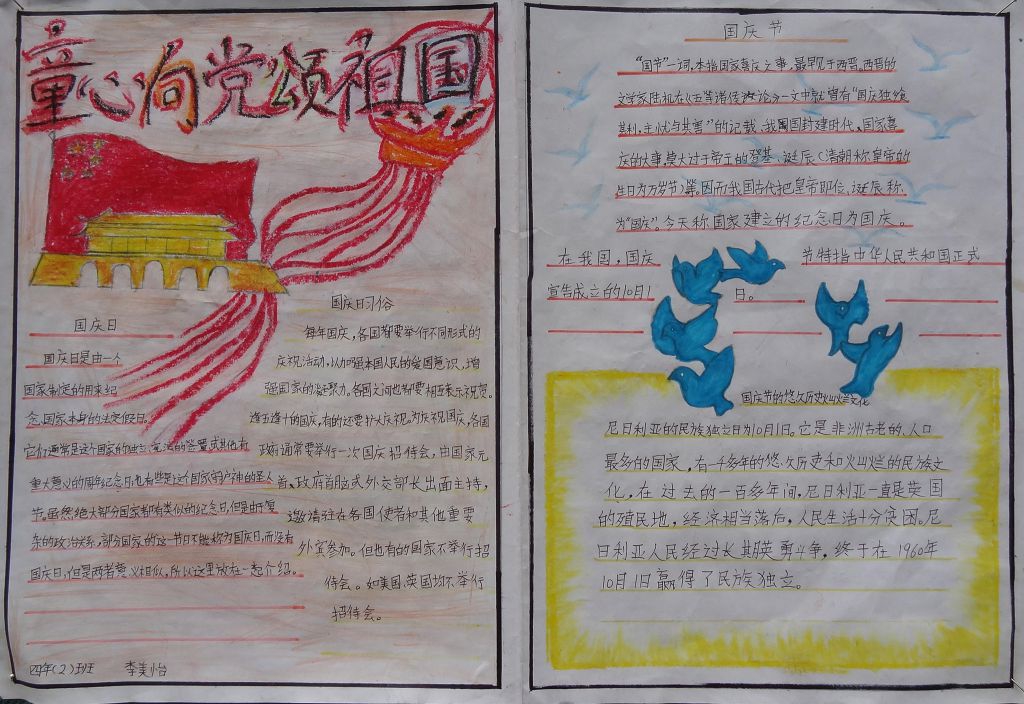 童心向党颂祖国
国庆日
国庆日是由一个
国家制定的用来纪
念国家本身的法定假日。
它们通常是这个国家的独立、宪法的签署、或其他有
重大意义的周年纪念日;也有些是这个国家守户神的圣人
节。虽然绝大部分国家都有类似的纪念日,但是由于复
杂的政治关系,部分国家的这一节日不能称为国庆日,而没有
国庆日,但是两者意义相似,所以这里放在一起介绍。
四年(2)班班 李美怡
国庆日习俗
每年国庆,各国都要举行不同形式的
庆祝活动,以加强本国人民的爱国意识,增
强国家的凝聚力。各国之间也都要相互表示祝贺。
逢五逢十的国庆,有的还要扩大庆祝。为庆祝国庆,各国
政府通常要举行一次国庆招待会,由国家元
首、政府首脑或外交部长出面主持,
邀请驻在各国使者和其他重要
外宾参加。但也有的国家不举行招
待会。如美国、英国均不举行
招待会。
国庆节
“国节”一词,本指国家喜庆之事,最早见于西晋。西晋的
文学家陆机在《五等诸侯论》一文中就曾有“国庆独飨
其利,主忧与其害”的记载、我国封建时代、国家喜
庆的大事,莫大过于帝王的登基、诞辰(清朝称皇帝的
生日为万岁节)等。因而我国古代把皇帝即位、诞辰称
为“国庆”。今天称国家建立的纪念日为国庆。
在我国,国庆 节特指中华人民共和国正式
宣告成立的10月1 日。
国庆节的悠久历史灿烂文化
尼日利亚的民族独立日为10月1日。它是非洲古老的、人口
最多的国家,有一千多年的悠久历史和灿烂的民族文
化,在过去的一百多年间,尼日利亚一直是英国
的殖民地,经济相当落后,人民生活十分贫困。尼
日利亚人民经过长期英勇斗争,终于在1960年
10月1日赢得了民族独立。